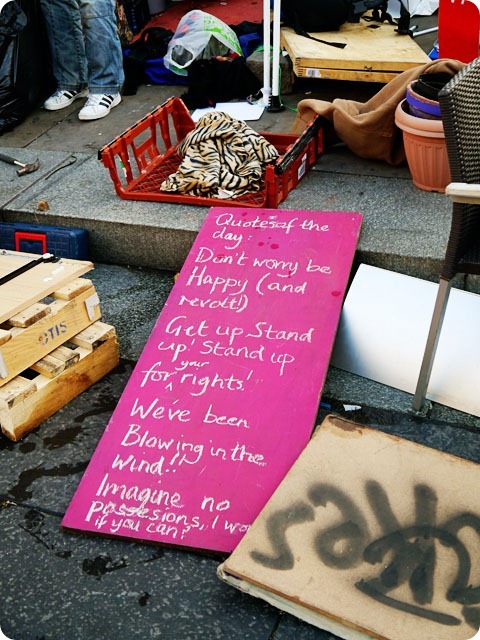 Quotes of the
day:
Don't worry be
Happy (and
revolt!)
Get up Stand
up! Stand up
for your rights!
We've been
Blowing in the
wind!!
Imagine no
Possesions, I wo
if you can?
OTIS